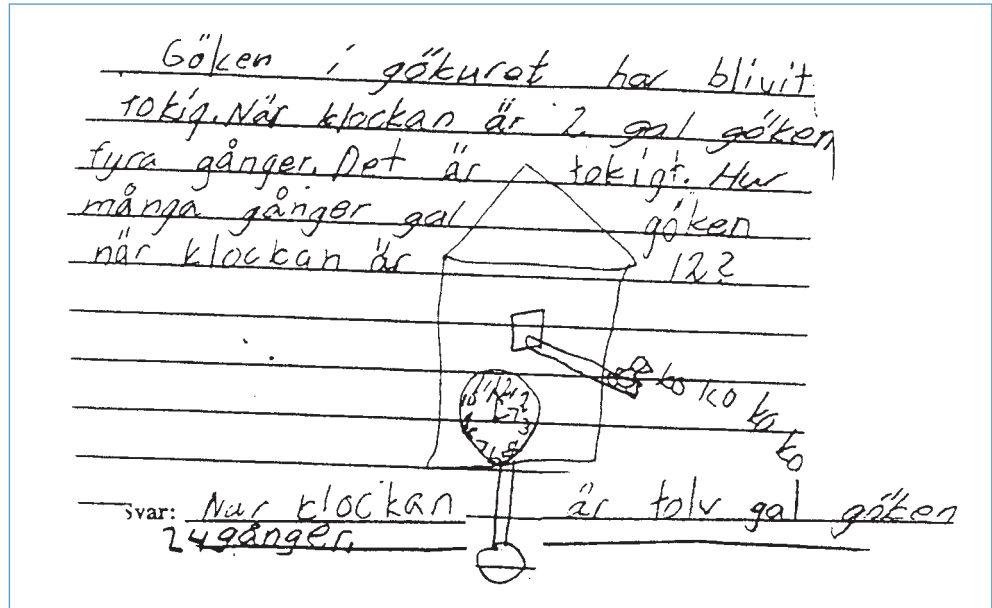 Göken i gökuret har blivit
tokig. När klockan är 2 gal göken
fyra gånger. Det är tokigt. Hur
många gånger gal göken
när klockan är 12?
ko ko ko ko
Svar: När klockan är tolv gal göken
24 gånger.